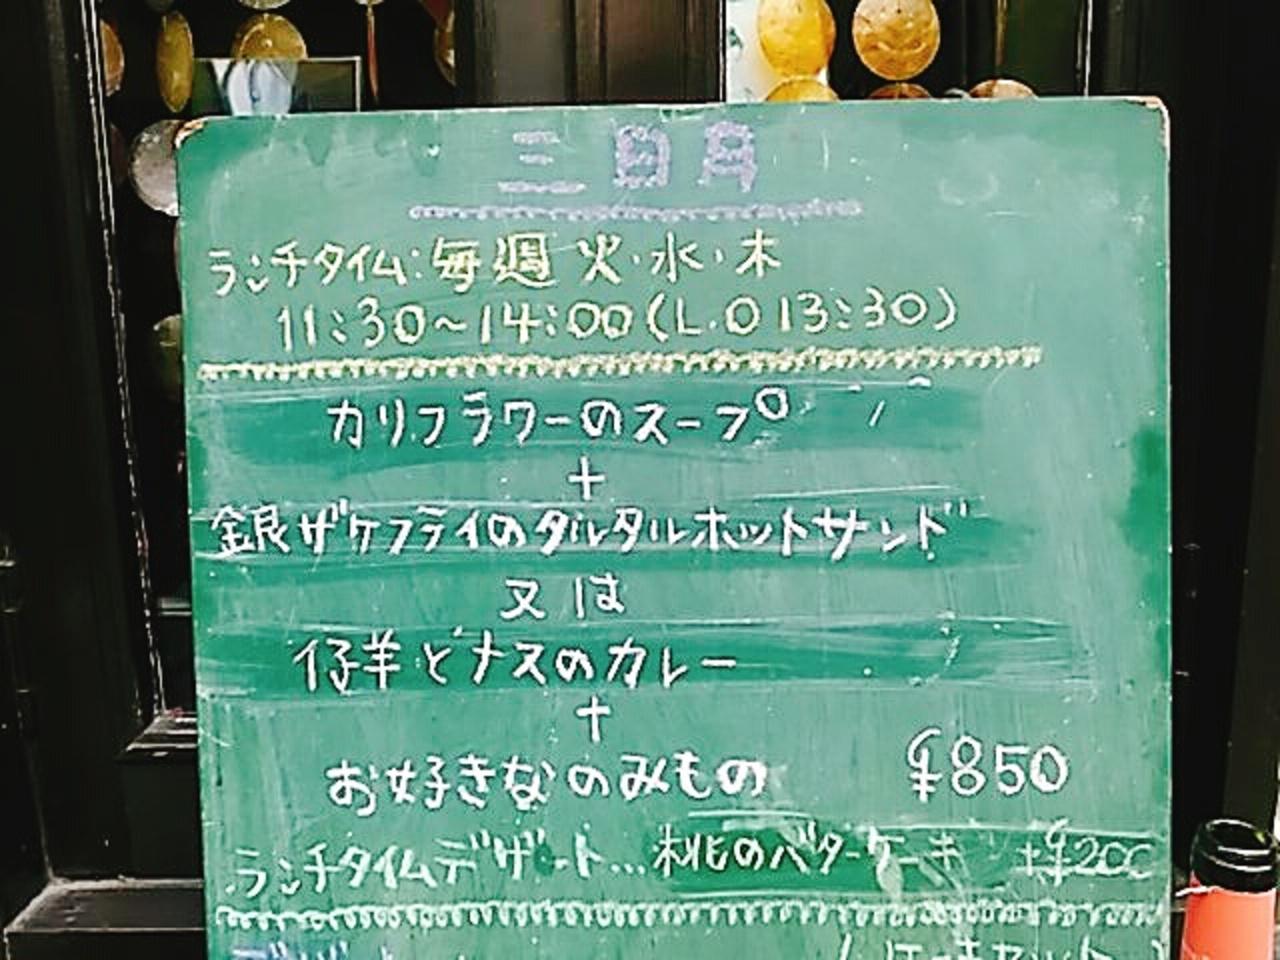 三日月
ランチタイム:毎週 火・水・木
11:30~14:00(L.O 13:30)
カリフラワーのスープ
+
銀ザケフライのタルタルホットサンド
又は
仔羊とナスのカレー
+
お好きなのみもの ¥850
ランチタイムデザート...桃のバターケーキ +¥200